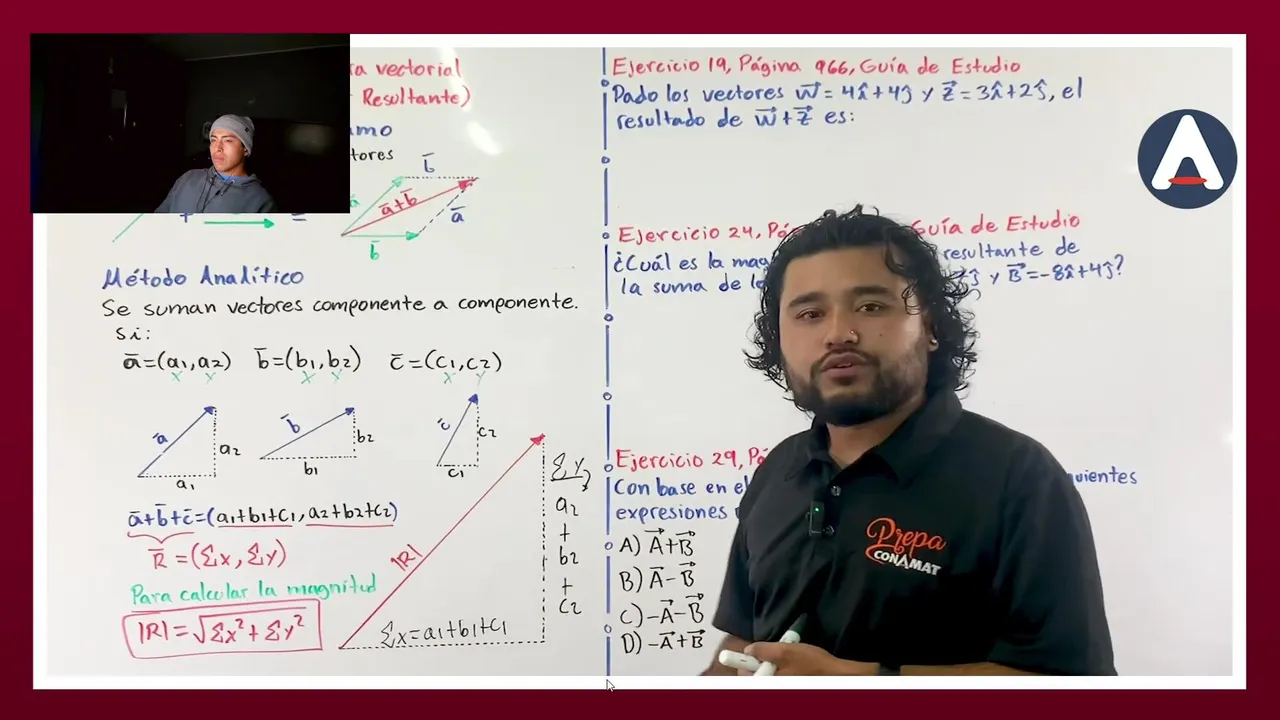 ra vectorial
Resultante)
amo
tores
b̄
ā+b̄
ā
b̄
+ =
Método Analítico
Se suman vectores componente a componente.
Si:
ā=(a1,a2) b̄=(b1,b2) c̄=(c1,c2)
x y x y x y
ā a2 b̄ b2 c̄ c2
a1 b1 c1
ā+b̄+c̄=(a1+b1+c1,a2+b2+c2)
R̄=(Σx,Σy)
Para calcular la magnitud
|R|=√Σx²+Σy²
|R|
Σx=a1+b1+c1
Σy
a2
+
b2
+
c2
Ejercicio 19, Página 966, Guía de Estudio
Dado los vectores w⃗=4î+4ĵ y z⃗=3î+2ĵ, el
resultado de w⃗+z⃗ es:
Ejercicio 24, Guía de Estudio
¿Cuál es la resultante de
la suma de y B⃗=-8î+4ĵ?
Ejercicio 29,
Con base en el
expresiones
A) A⃗+B⃗
B) A⃗-B⃗
C) -A⃗-B⃗
D) -A⃗+B⃗
Prepa
CONAMAT
A